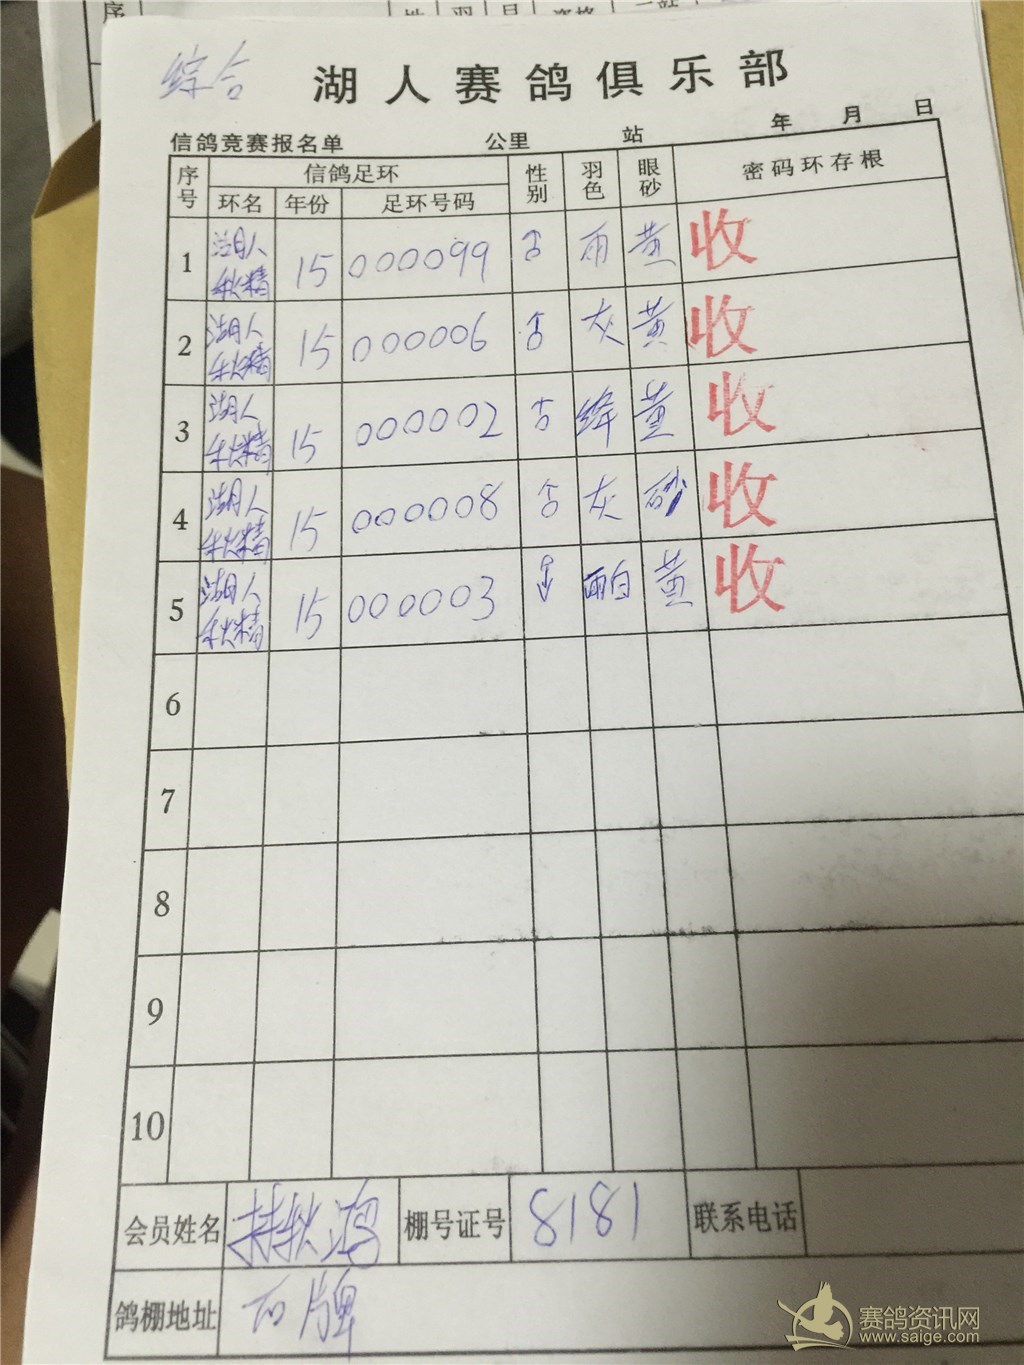 综合
湖人赛鸽俱乐部
信鸽竞赛报名单 公里 站 年 月 日
序号 信鸽足环 性别 羽色 眼砂 密码环存根
环名 年份 足环号码
1 湖人秋精 15 000099 雨 黄 收
2 湖人秋精 15 000006 灰 黄 收
3 湖人秋精 15 000002 绛 黄 收
4 湖人秋精 15 000008 灰 砂 收
5 湖人秋精 15 000003 雨白 黄 收
6
7
8
9
10
会员姓名 秋鸿 棚号证号 8181 联系电话
鸽棚地址 石牌
赛鸽资讯网
www.saige.com